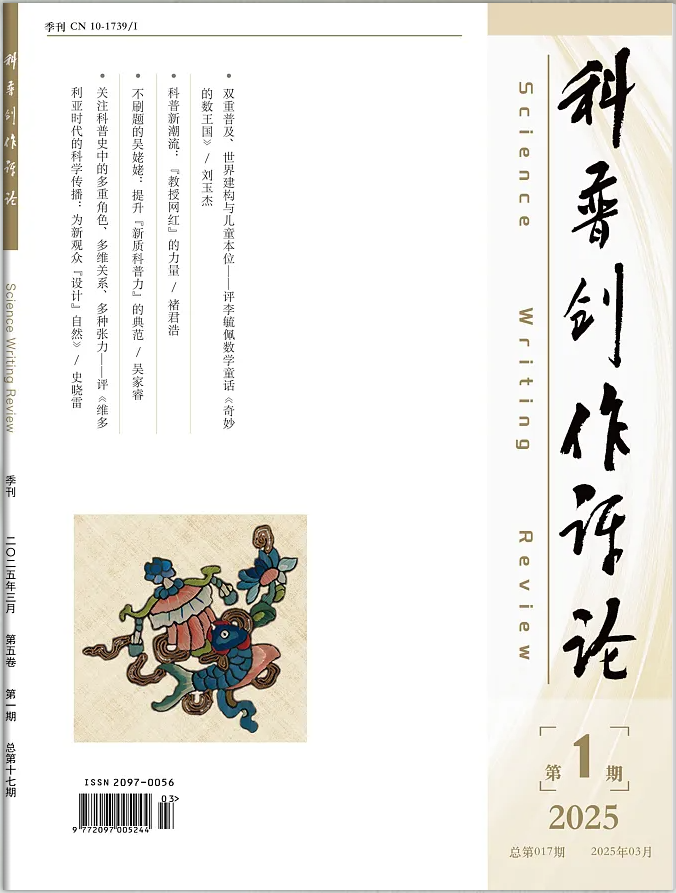 季刊 CN 10-1739/I
科普创作评论
Science Writing Review
双重普及、世界建构与儿童本位——评李毓佩数学童话《奇妙
的数王国》/ 刘玉杰
科普新潮流：『教授网红』的力量 / 褚君浩
不刷题的吴姥姥：提升『新质科普力』的典范 / 吴家睿
关注科普史中的多重角色、多维关系、多种张力——评《维多
利亚时代的科学传播：为新观众『设计』自然》/ 史晓雷
ISSN 2097-0056
03>
9 772097 005244
第1期
2025
总第017期 2025年03月
科普创作评论
Science Writing Review
季刊
二〇二五年三月
第五卷
第一期
总第十七期